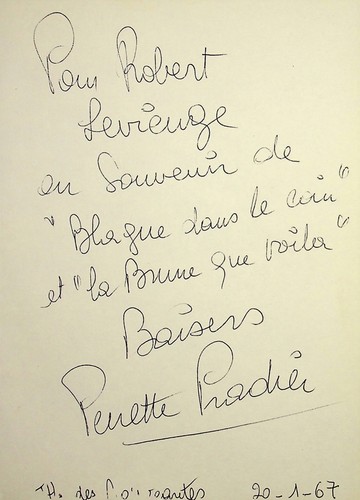 Pour Robert
Levieuge
en Souvenir de
"Blague dans le coin"
et "la Brune que voilà"
Baisers
Perrette Pradier
Th. des 20-1-67